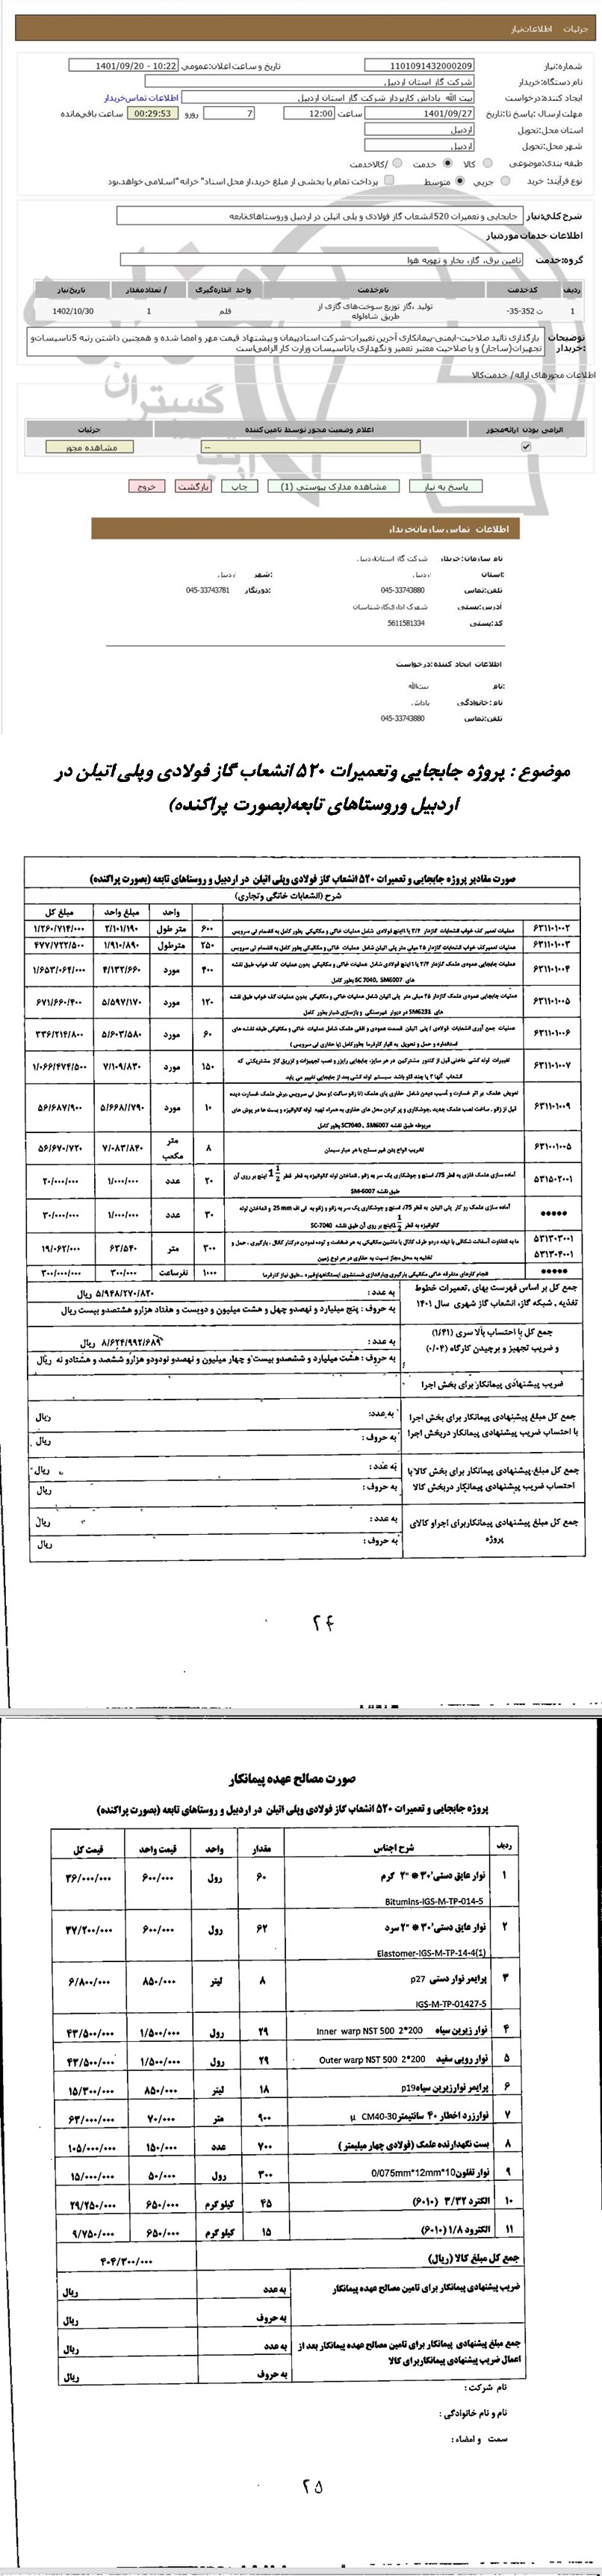 جزئیات اطلاعات نیاز
شماره نیاز: 1101091432000209
تاریخ و ساعت اعلان عمومی: 1401/09/20 - 10:22
نام دستگاه خریدار: شرکت گاز استان اردبیل
ایجاد کننده درخواست: بیت الله پاداش کاربردار شرکت گاز استان اردبیل
اطلاعات تماس خریدار
مهلت ارسال پاسخ تا: تاریخ 1401/09/27 ساعت 12:00 7 روز و 00:29:53 ساعت باقی مانده
استان محل تحویل: اردبیل
شهر محل تحویل: اردبیل
طبقه بندی موضوعی: کالا خدمت کالا/خدمت
نوع فرآیند خرید: جزیی متوسط پرداخت تمام یا بخشی از مبلغ خرید،از محل اسناد" خزانه "اسلامی خواهد بود.
شرح کلی نیاز: جابجایی و تعمیرات 520انشعاب گاز فولادی و پلی اتیلن در اردبیل وروستاهای تابعه
اطلاعات خدمات مورد نیاز
گروه خدمت: تامین برق، گاز، بخار و تهویه هوا
ردیف کد خدمت نام خدمت واحد اندازه گیری تعداد/مقدار تاریخ نیاز
1 ت 352-35- تولید ،گاز توزیع سوخت‌های گازی از طریق شاه لوله قلم 1 1402/10/30
توضیحات خریدار: بارگذاری تائید صلاحیت-ایمنی-پیمانکاری آخرین تغییرات-شرکت اسنادپیمان وپیشنهاد قیمت مهر و امضا شده و همچنین داشتن رتبه 5تاسیسات و
تجهیزات(ساجار) و یا صلاحیت معتبر تعمیر و نگهداری یاتاسیسات وزارت کار الزامی است
اطلاعات مجوزهای ارائه خدمت/کالا
الزامی بودن ارائه مجوز اعلام وضعیت مجوز توسط تامین کننده جزئیات
-- مشاهده مجوز
پاسخ به نیاز مشاهده مدارک پیوستی (1) چاپ بازگشت خروج
اطلاعات تماس سازمان خریدار
نام سازمان خریدار: شرکت گاز استان اردبیل
استان: اردبیل شهر: اردبیل
تلفن تماس: 045-33743880 دورنگار: 045-33743781
آدرس پستی: شهرک اداری کارشناسان
کد پستی: 5611581334
اطلاعات ایجاد کننده درخواست
نام: بیت الله
نام خانوادگی: پاداش
تلفن تماس: 045-33743880
موضوع : پروژه جابجایی وتعمیرات ۵۲۰ انشعاب گاز فولادی وپلی اتیلن در
اردبیل وروستاهای تابعه(بصورت پراکنده)
صورت مقادیر پروژه جابجایی و تعمیرات ۵۲۰ انشعاب گاز فولادی وپلی اتیلن در اردبیل و روستاهای تابعه (بصورت پراکنده)
شرح (انشعابات خانگی وتجاری)
واحد مبلغ واحد مبلغ کل
۶۳۱۱۰۱۰۰۲ عملیات تعمیر کف خواب انشعابات گازدار ۳/۴ یا ۱اینچ فولادی شامل عملیات خاکی و مکانیکی بطور کامل به انضمام تی سرویس ۶۰۰ متر طول ۲/۱۰۱/۱۹۰ ۱/۲۶۰/۷۱۴/۰۰۰
۶۳۱۱۰۱۰۰۳ عملیات تعمیرکف خواب انشعابات گازدار ۲۵ میلی متر پلی اتیلن شامل عملیات خاکی و مکانیکی بطور کامل به انضمام تی سرویس ۲۵۰ مترطول ۱/۹۱۰/۸۹۰ ۴۷۷/۷۲۲/۵۰۰
۶۳۱۱۰۱۰۰۴ عملیات جابجایی عمودی علمک گازدار ۳/۴ یا ۱ اینچ فولادی شامل عملیات خاکی و مکانیکی بدون عملیات کف خواب طبق نقشه
های SC 7040, SM6007 بطور کامل ۴۰۰ مورد ۴/۱۳۲/۶۶۰ ۱/۶۵۳/۰۶۴/۰۰۰
۶۳۱۱۰۱۰۰۵ عملیات جابجایی عمودی علمک گازدار ۲۵ میلی متر پلی اتیلن شامل عملیات خاکی و مکانیکی بدون عملیات کف خواب طبق نقشه
های SM6231 در دیوار غیرسنگی و بازسازی شیار بطور کامل ۱۲۰ مورد ۵/۵۹۷/۱۷۰ ۶۷۱/۶۶۰/۴۰۰
۶۳۱۱۰۱۰۰۶ عملیات جمع آوری انشعابات فولادی / پلی اتیلن قسمت عمودی و افقی علمک شامل عملیات خاکی و مکانیکی طبقه نقشه های
استاندارد و حمل و تحویل به انبار کارفرما بطورکامل (با حفاری تی سرویس ) ۶۰ مورد ۵/۶۰۳/۵۸۰ ۳۳۶/۲۱۴/۸۰۰
۶۳۱۱۰۱۰۰۷ تغییرات لوله کشی داخلی قبل از کنتور مشترکین در هر سایز، جابجایی رایزر و نصب تجهیزات و تزریق گاز مشترکینی که
انشعاب آنها ۲ یا چند کنتور باشد سیستم لوله کشی بعد از جابجایی تغییر می یابد ۱۵۰ مورد ۷/۱۰۹/۸۳۰ ۱/۰۶۶/۴۷۴/۵۰۰
۶۳۱۱۰۱۰۰۹ تعویض علمک بر اثر خسارت و آسیب دیدن شامل حفاری پای علمک (تا زانو ساکت )و محل تی سرویس ،برش علمک خسارت دیده
قبل از زانو ، ساخت نصب علمک جدید ،جوشکاری و پر کردن محل های حفاری به همراه تهیه لوله گالوانیزه و بست ها در پوش های
مربوطه طبق نقشه SC7040 , SM6007 بطور کامل ۱۰ مورد ۵/۶۶۸//۷۹۰ ۵۶/۶۸۷/۹۰۰
۶۳۱۰۰۱۰۰۵ تخریب انواع بتن غیر مسلح با هر عیار سیمان ۸ متر مکعب ۷/۰۸۳/۸۴۰ ۵۶/۶۷۰/۷۲۰
۵۳۱۵۰۲۰۰۱ آماده سازی علمک فلزی به قطر 75/. اسنچ و جوشکاری یک سر به زانو ، انداختن لوله گالوانیزه به قطر قطر 1 1/2 اینچ بر روی آن
طبق نقشه SM-6007 ۲۰ عدد ۱/۰۰۰/۰۰۰ ۲۰/۰۰۰/۰۰۰
••••• آماده سازی علمک رو کار پلی اتیلن به قطر 75/. اسنچ و جوشکاری یک سر به زانو و زانو به تی اف 25 mm و انداختن لوله
گالوانیزه به قطر 1 1/2 اینچ بر روی آن طبق نقشه SC-7040 ۳۰ عدد ۱/۰۰۰/۰۰۰ ۳۰/۰۰۰/۰۰۰
۵۳۱۳۰۲۰۰۱
۵۳۱۳۰۴۰۰۱ ما به التفاوت آسفالت شکافی با تیغه دردو طرف کانال با ماشین مکانیکی به هر ضخامت و توده نمودن درکنار کانال ، بارگیری ، حمل و
تخلیه به محل مجاز نسبت به حفاری در هر نوع زمین ۳۰۰ متر ۶۳/۵۴۰ ۱۹/۰۶۲/۰۰۰
••••• انجام کارهای متفرقه خاکی مکانیکی بارگیری وباراندازی شستشوی ایستگاهها وغیره ..طبق نیاز کارفرما ۱۰۰۰ نفرساعت ۳۰۰/۰۰۰ ۳۰۰/۰۰۰/۰۰۰
جمع کل بر اساس فهرست بهای .تعمیرات خطوط
تغذیه ، شبکه گاز، انشعاب گاز شهری سال ۱۴۰۱
به عدد : ۵/۹۴۸/۲۷۰/۸۲۰ ریال
به حروف : پنج میلیارد و نهصدو چهل و هشت میلیون و دویست و هفتاد هزارو هشتصدو بیست ریال
جمع کل با احتساب بالا سری (۱/۴۱)
و ضریب تجهیز و برچیدن کارگاه (۰/۰۴)
به عدد : ۸/۶۲۴/۹۹۲/۶۸۹ ریال
به حروف : هشت میلیارد و ششصدو بیست و چهار میلیون و نهصدو نودودو هزارو ششصد و هشتادو نه ریال
ضریب پیشنهادی پیمانکار برای بخش اجرا
جمع کل مبلغ پیشنهادی پیمانکار برای بخش اجرا
با احتساب ضریب پیشنهادی پیمانکار دربخش اجرا
به عدد: ریال
به حروف : ریال
جمع کل مبلغ پیشنهادی پیمانکار برای بخش کالا با
احتساب ضریب پیشنهادی پیمانکار دربخش کالا
به عدد : ریال
به حروف : ریال
جمع کل مبلغ پیشنهادی پیمانکاربرای اجراو کالای
پروژه
به عدد : ریال
به حروف : ریال
۲۴
صورت مصالح عهده پیمانکار
پروژه جابجایی و تعمیرات ۵۲۰ انشعاب گاز فولادی وپلی اتیلن در اردبیل و روستاهای تابعه (بصورت پراکنده)
ردیف شرح اجناس مقدار واحد قیمت واحد قیمت کل
۱ نوار عایق دستی'۳۰ * "۲ گرم ۶۰ رول ۶۰۰/۰۰۰ ۳۶/۰۰۰/۰۰۰
Bitumins-IGS-M-TP-014-5
۲ نوار عایق دستی'۳۰ * "۲ سرد ۶۲ رول ۶۰۰/۰۰۰ ۳۷/۲۰۰/۰۰۰
Elastomer-IGS-M-TP-14-4(1)
۳ پرایمر نوار دستی p27 ۸ لیتر ۸۵۰/۰۰۰ ۶/۸۰۰/۰۰۰
IGS-M-TP-01427-5
۴ نوار زیرین سیاه Inner warp NST 500 2*200 ۲۹ رول ۱/۵۰۰/۰۰۰ ۴۳/۵۰۰/۰۰۰
۵ نوار رویی سفید Outer warp NST 500 2*200 ۲۹ رول ۱/۵۰۰/۰۰۰ ۴۳/۵۰۰/۰۰۰
۶ پرایمر نوارزیرین سیاه p19 ۱۸ لیتر ۸۵۰/۰۰۰ ۱۵/۳۰۰/۰۰۰
۷ نوارزرد اخطار ۴۰ سانتیمتر µ CM40-30 ۹۰۰ متر ۷۰/۰۰۰ ۶۳/۰۰۰/۰۰۰
۸ بست نگهدارنده علمک (فولادی چهار میلیمتر ) ۷۰۰ عدد ۱۵۰/۰۰۰ ۱۰۵/۰۰۰/۰۰۰
۹ نوار تفلون 0/075mm*12mm*10 ۳۰۰ رول ۵۰/۰۰۰ ۱۵/۰۰۰/۰۰۰
۱۰ الکترد ۳/۳۲ (۶۰۱۰) ۴۵ کیلو گرم ۶۵۰/۰۰۰ ۲۹/۲۵۰/۰۰۰
۱۱ الکترود ۱/۸ (۶۰۱۰) ۱۵ کیلو گرم ۶۵۰/۰۰۰ ۹/۷۵۰/۰۰۰
جمع کل مبلغ کالا (ریال) ۴۰۴/۳۰۰/۰۰۰
ضریب پیشنهادی پیمانکار برای تامین مصالح عهده پیمانکار
به عدد ریال
به حروف ریال
جمع مبلغ پیشنهادی پیمانکار برای تامین مصالح عهده پیمانکار بعد از
اعمال ضریب پیشنهادی پیمانکاربرای کالا
به عدد ریال
به حروف ریال
نام شرکت :
نام و نام خانوادگی :
سمت و امضاء :
۲۵